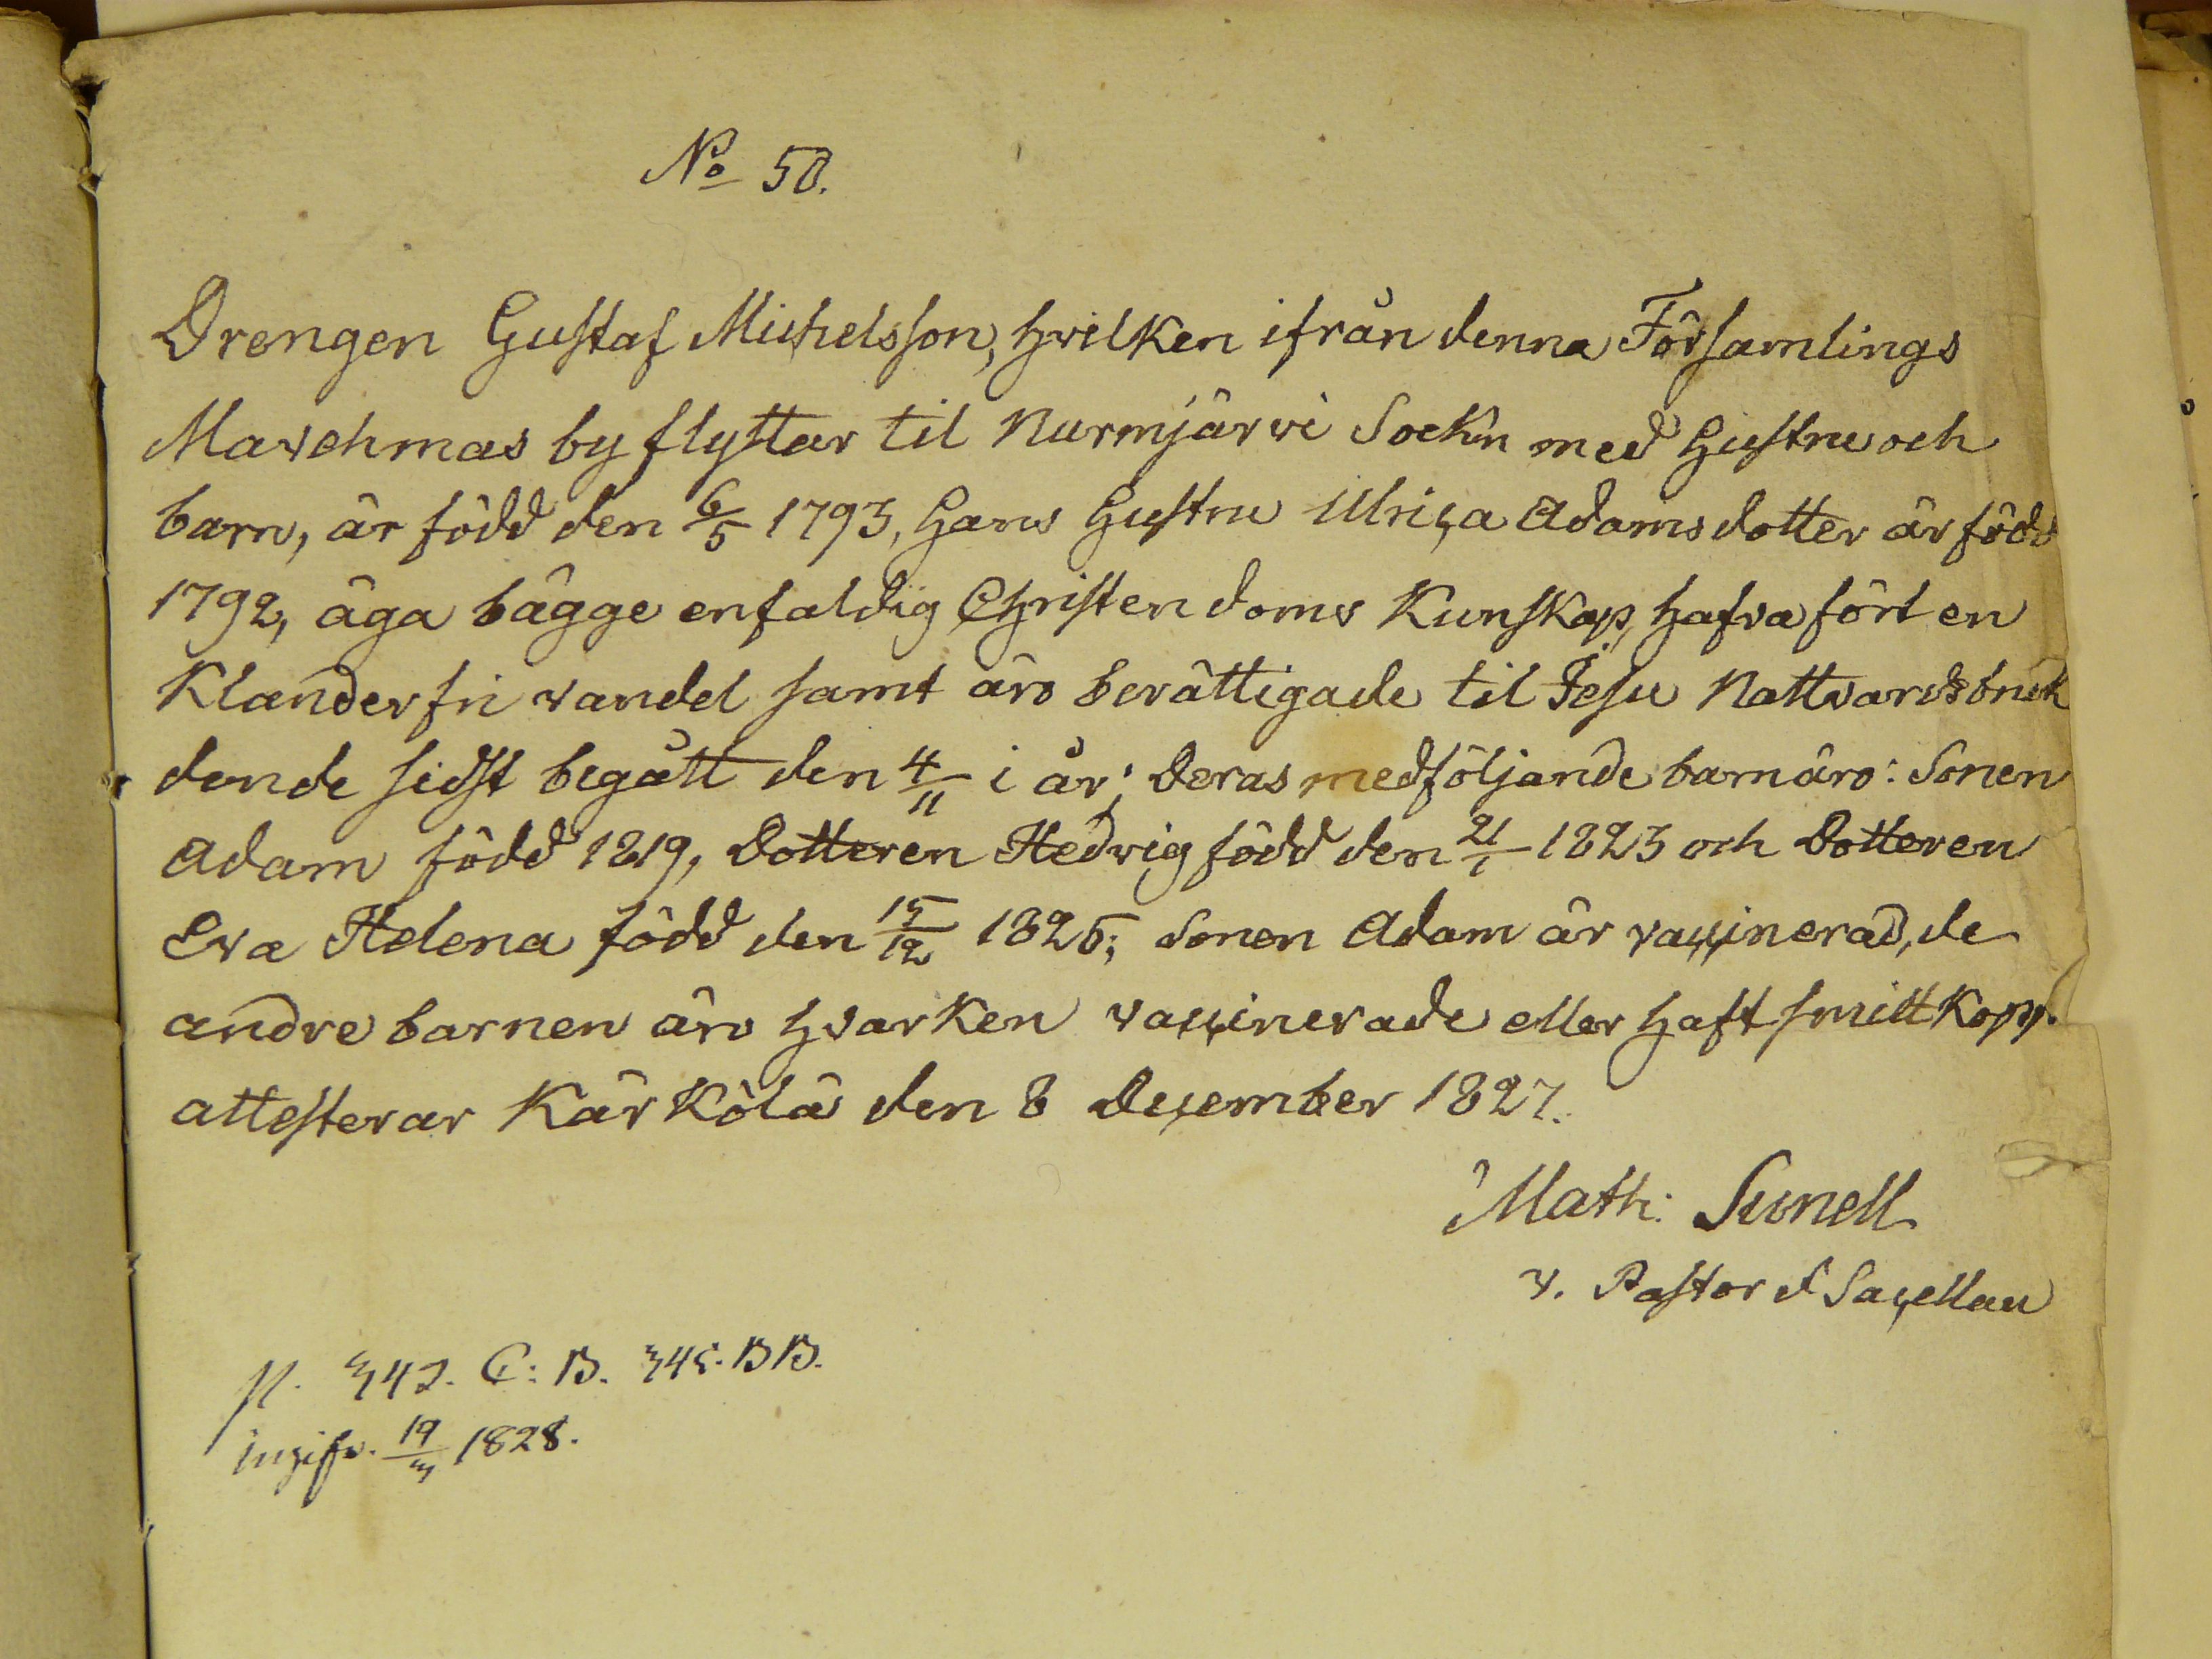 No 50.
Drengen Gustaf Michelsson, hvilken ifrån denna Församlings
Marchmas by flyttar til Nurmjärvi Sockn med hustru och
barn, är född den 6/5 1793, hans hustru Ulrica Adamsdotter är född
1792, äga bägge enfaldig Christendoms Kunskap, hafva fört en
Klanderfri vandel samt äro berättigade til Jesu Nattvards bruk
dende sidst begått den 4/11 i år; Deras medföljande barn äro: Sonen
Adam född 1819, Dotteren Hedvig född den 21/1 1823 och Dotteren
Eva Helena född den 15/12 1825; Sonen Adam är vaccinerad, de
andre barnen äro hvarken vaccinerade eller haft smittkopp.
attesterar Kärkölä den 8 December 1827.
Math: Sunell
v. Pastor & Sacellan
p. 342. C: B. 345. BB.
ingifv. 19/III 1828.